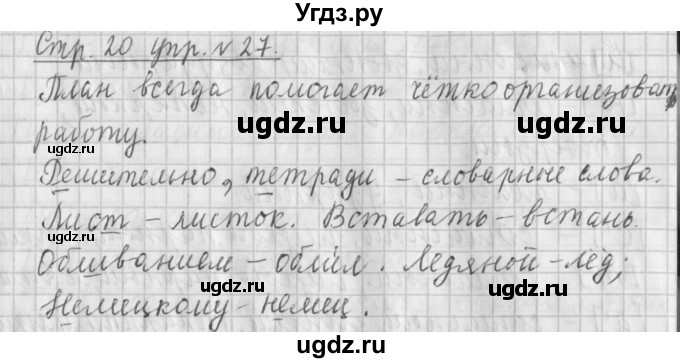 Угдз.ру
Стр. 20 упр. № 27.
План всегда помогает чётко организовать
ugdz.ru ugdz.ru
работу.
ugdz.ru
Решительно, тетради – словарные слова.
Лист – листок. Вставать – встань.
ugdz.ru ugdz.ru
Обливанием – облил. Ледяной – лёд;
Немецкому – немец.
ugdz.ru